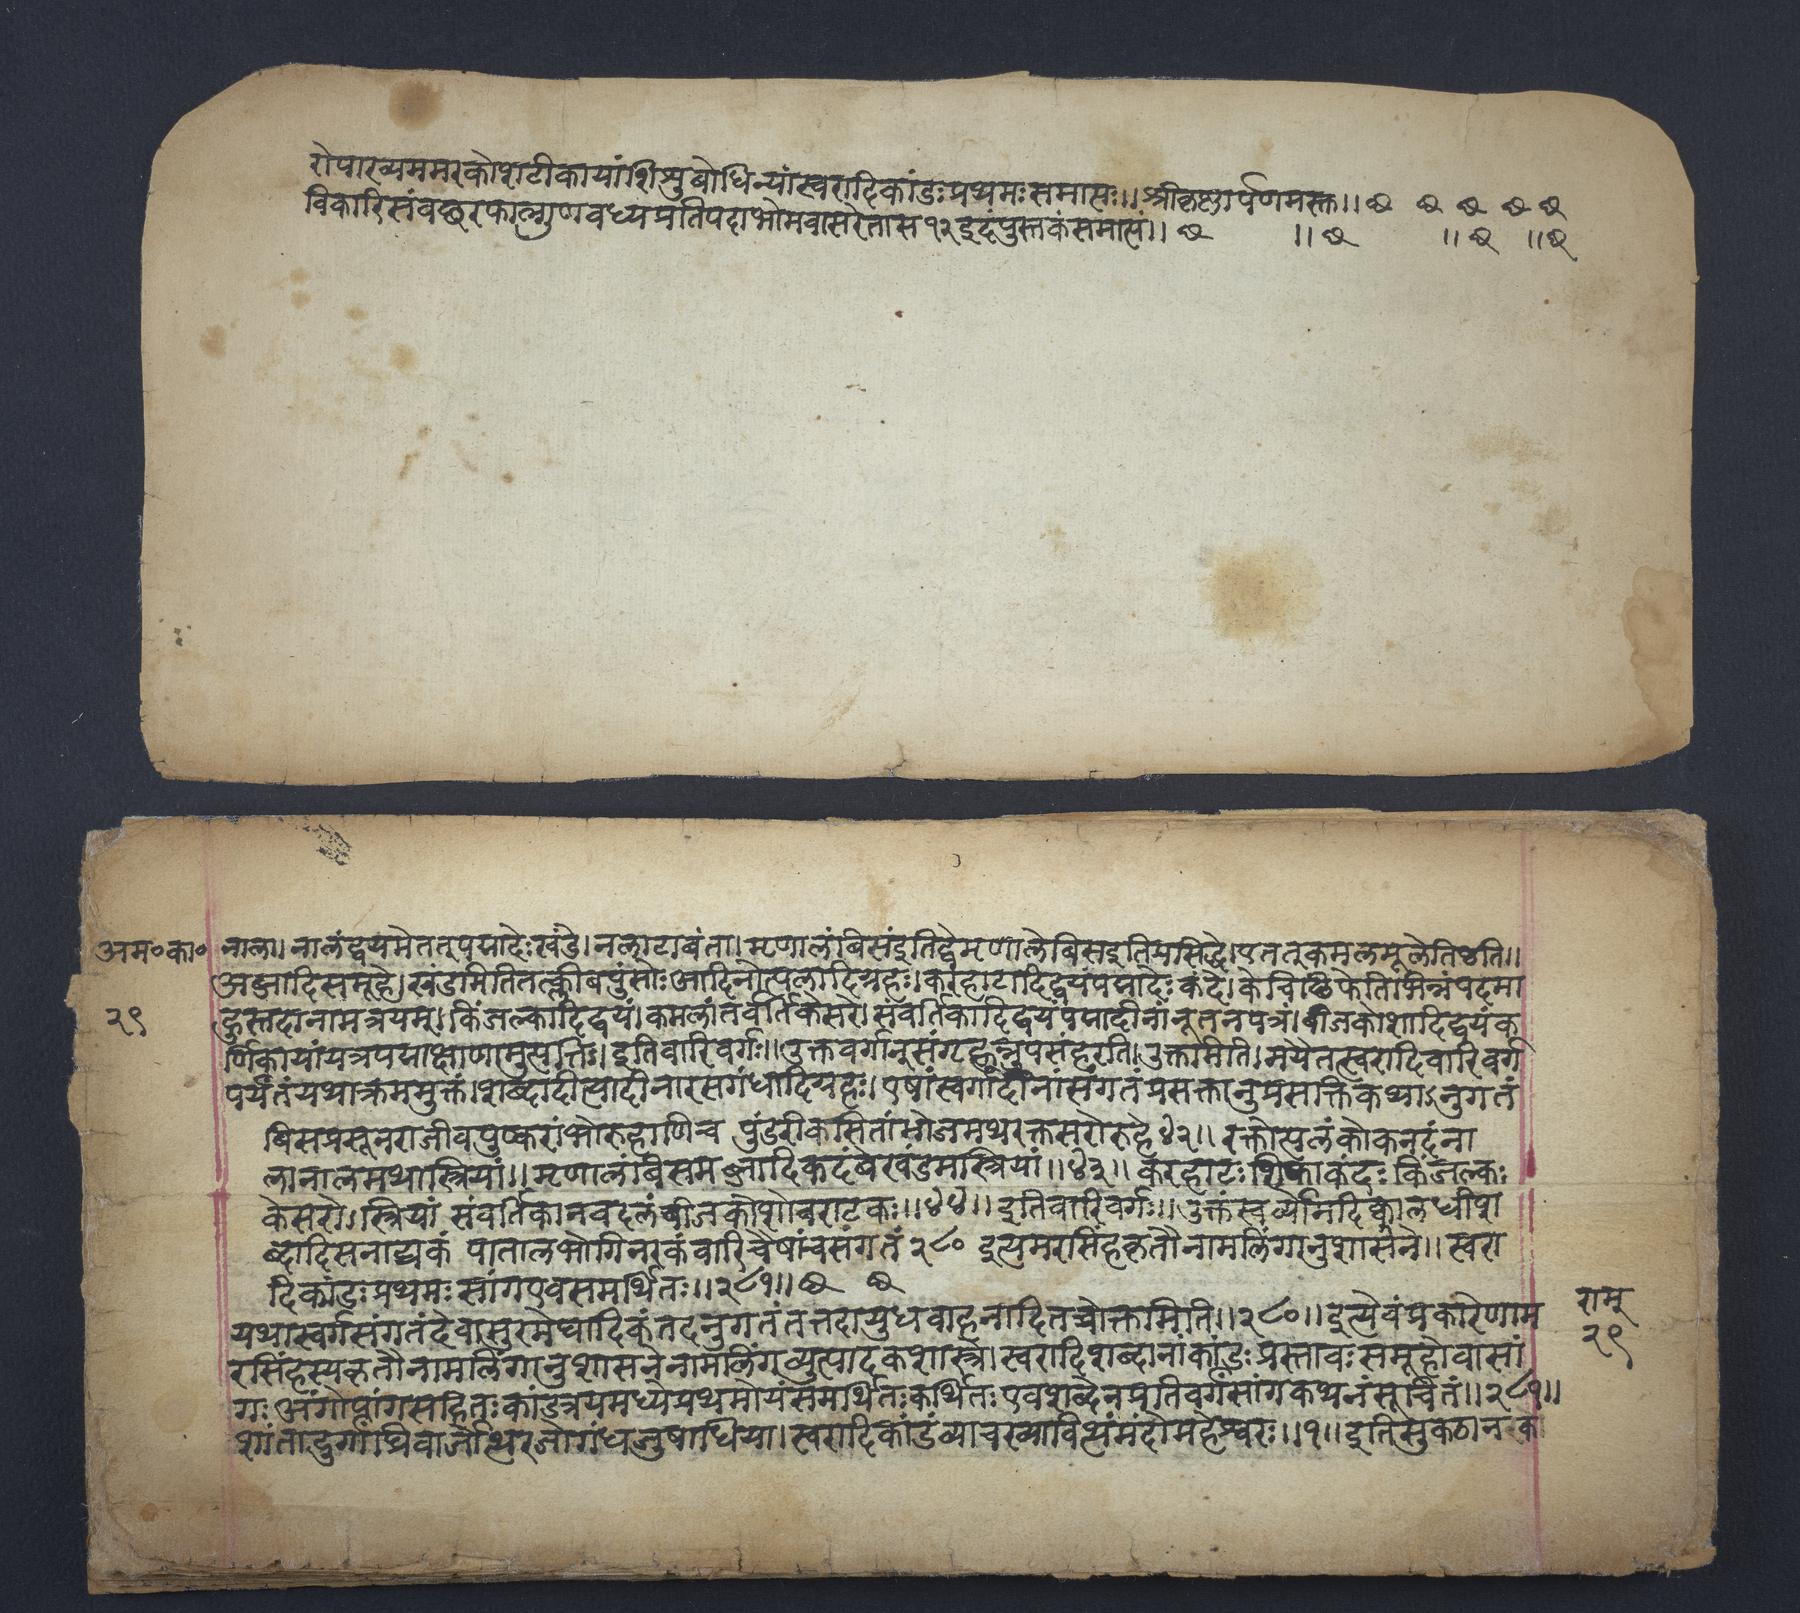 रोपाख्यममरकोशटीकायांशिशुबोधिन्यांस्वरादिकांडःप्रथमःसमाप्तः।।श्रीकृष्णार्पणमस्तु।।
विकारिसंवछरफाल्गुणवध्यप्रतिपदाभोमवासरेतास१२इदंपुस्तकंसमाप्तं।।
अम॰का॰
नाला।नालंद्वयमेतत्पद्मादेःखंडे।मृणालंबिसंइतिद्वेमृणालेबिसइतिप्रसिद्धे।एतत्तुकमलमूलेतिष्ठति।।
अब्जादिसमूहे।खंडमितितत्क्लीबपुंसोःआदिनोत्पलादिग्रहः।करहाटादिद्वयंपद्मादेःकंदे।केचिछिफेतिभिन्नंपदमा
२९
हुस्तदानामत्रयम्।किंजल्कादिद्वयं।कमलांतर्वर्तिकेसरे।संवर्तिकादिद्वयंपद्मादीनांनूतनपत्रं।बीजकोशादिद्वयंक
र्णिकायांयत्रपद्माक्षाणामुत्पत्तिः।इतिवारिवर्गः।।उक्तवर्गानुसंगृह्णन्नुपसंहरति।उक्तमिति।मयैतत्स्वरादिवारिवर्ग
पर्यंतंयथाक्रममुक्तं।शब्दादीत्यादीनारसगंधादिग्रहः।एषांस्वर्गादीनांसंगतंप्रसक्तानुप्रसक्तिकथाऽनुगतं
बिसप्रसूनराजीवपुष्करांभोरुहाणिच पुंडरीकंसितांभोजमथरक्तसरोरुहे४२।।रक्तोत्पलंकोकनदंना
लानालमथास्त्रियां।।मृणालंबिसमब्जादिकदंबेखंडमस्त्रियां।।४३।।करहाटःशिफाकंदःकिंजल्कः
केसरोऽस्त्रियां संवर्तिकानवदलंबीजकोशोवराटकः।।४४।।इतिवारिवर्गः।।उक्तंस्वर्व्योमदिक्कालधीश
ब्दादिसनाट्यकं पातालभोगिनरकंवारिचैषांचसंगतं२८० इत्यमरसिंहकृतौनामलिंगानुशासने।।स्वरा
दिकांडःप्रथमःसांगएवसमर्थितः।।२८१।।
यथास्वर्गसंगतंदेवासुरमेघादिकंतदनुगतंतत्तदायुधवाहनादितच्चोक्तमिति।।२८०।।इत्येवंप्रकारेणाम
रामृ
२९
रसिंहस्यकृतौनामलिंगानुशासनेनामलिंगव्युत्पादकशास्त्रे।स्वरादिशब्दानांकांडःप्रस्तावःसमूहोवासां
गःअंगोपांगसहितःकांडत्रयमध्येप्रथमोयंसमर्थितःकथितःएवशब्देनप्रतिवर्गंसांगकथनंसूचितं।।२८१।।
स्वरादिकांडंव्याचख्यावित्थंमंदोमहेश्वरः।।१।।इतिसुकठानक